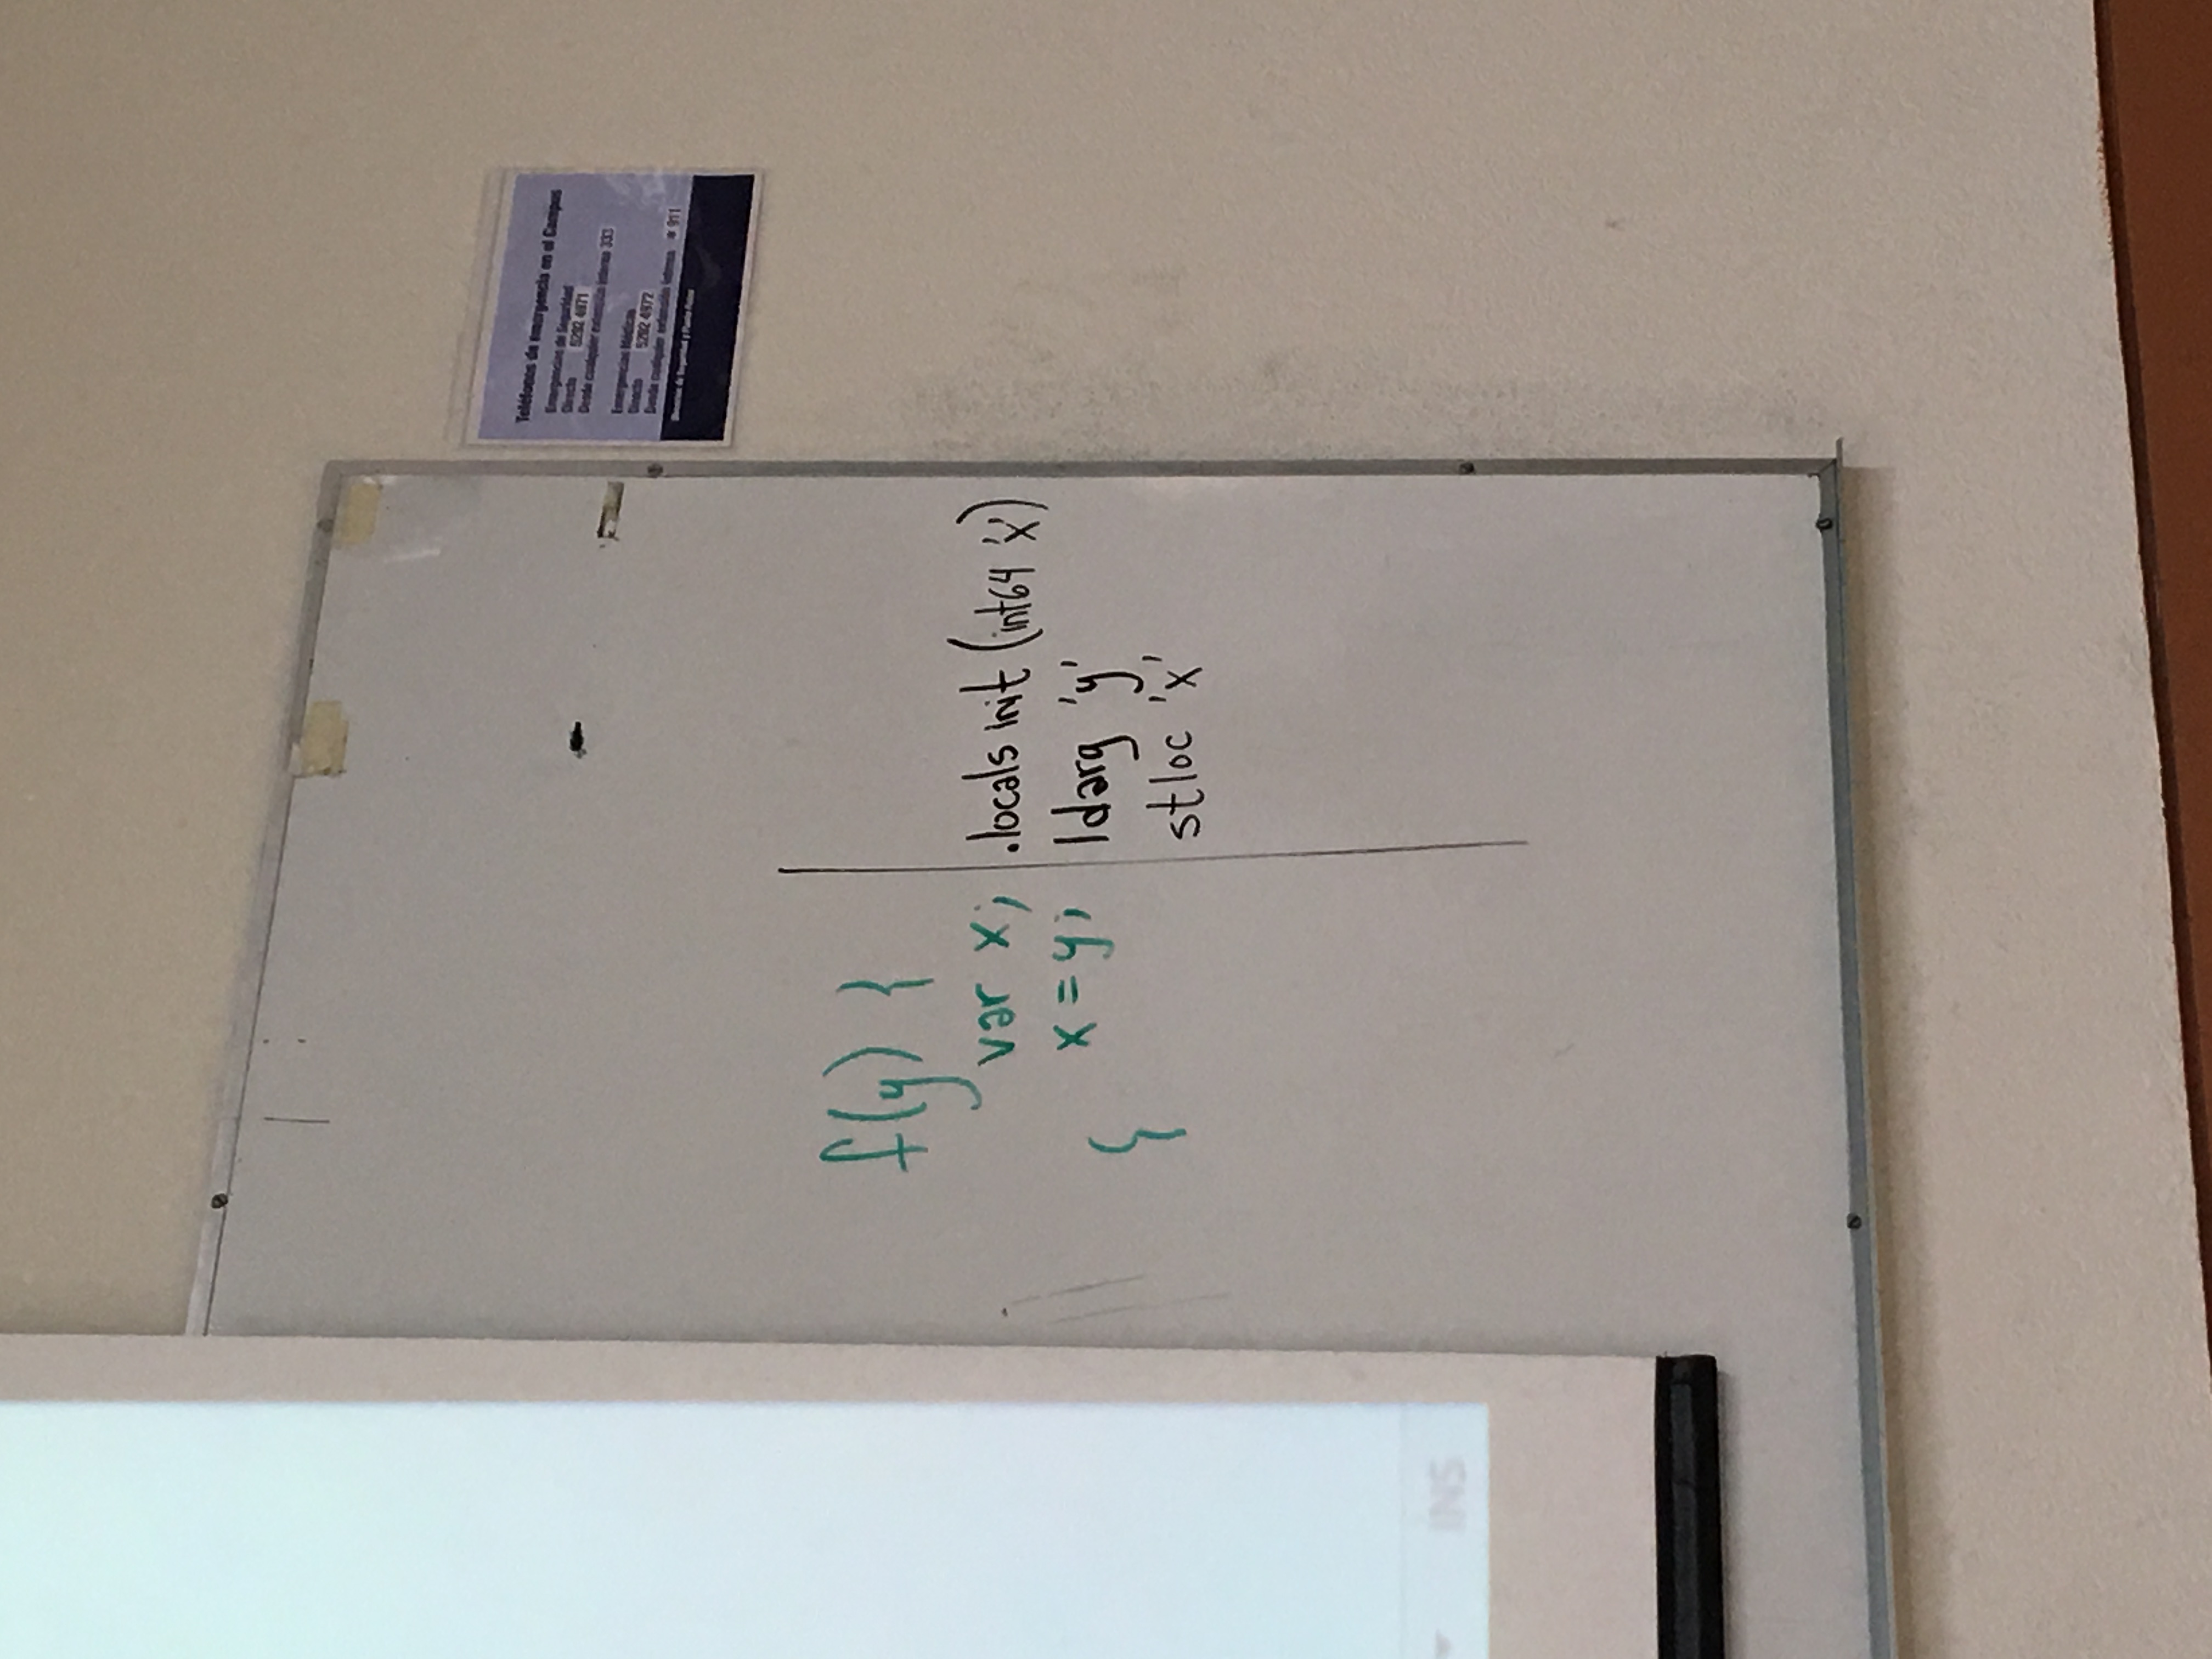 f(y) {
var x;
x = y;
{
.locals init (int64 'x')
ldarg 'y'
stloc 'x'
Teléfonos de emergencia en el Campus
Emergencias de Seguridad
Directo 5292 4971
Desde cualquier extensión interna 333
Emergencias Médicas
Directo 5292 4972
Desde cualquier extensión interna * 911
Dirección de Seguridad y Planta Física
INS